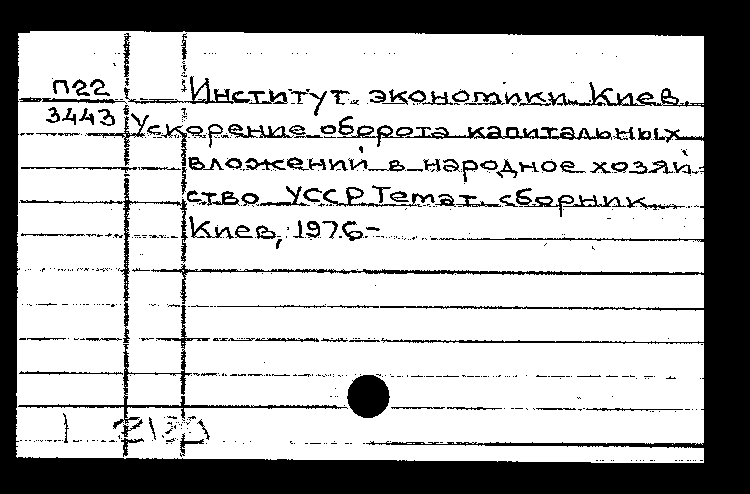 П22
Институт экономики. Киев.
3443
Ускорение оборота капитальных
вложений в народное хозяй-
ство УССР. Темат. сборник.
Киев, 1976-